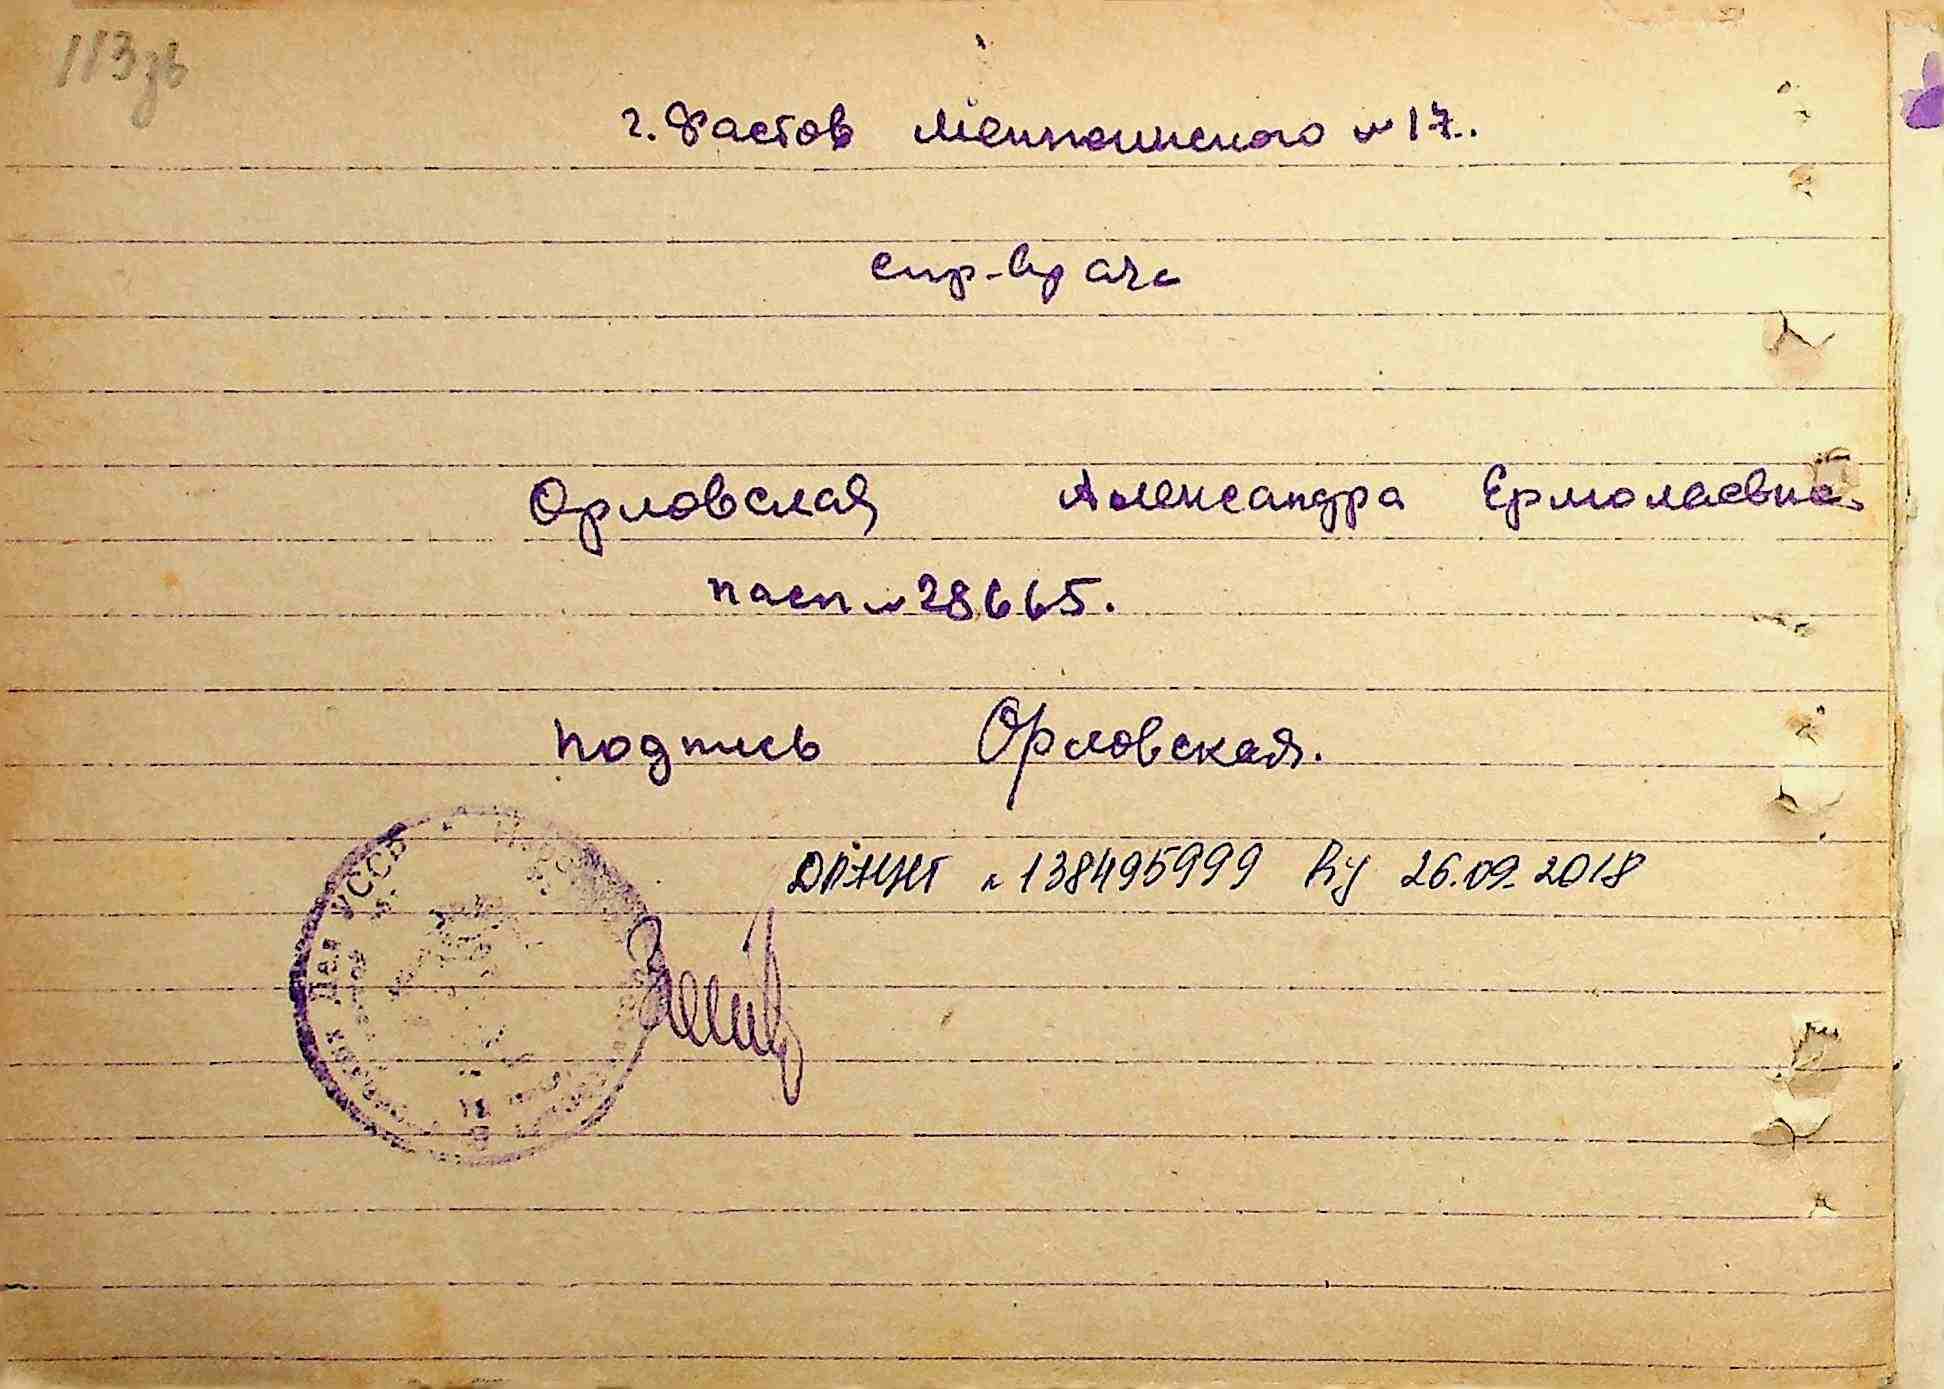 113 зв
г. Фастов Менжинского № 17.
спр-врача
Орловская Александра Ермолаевна.
пасп № 28665.
подпись Орловская.
№ 138495999 Ву 26.09.2018
Дел УССР